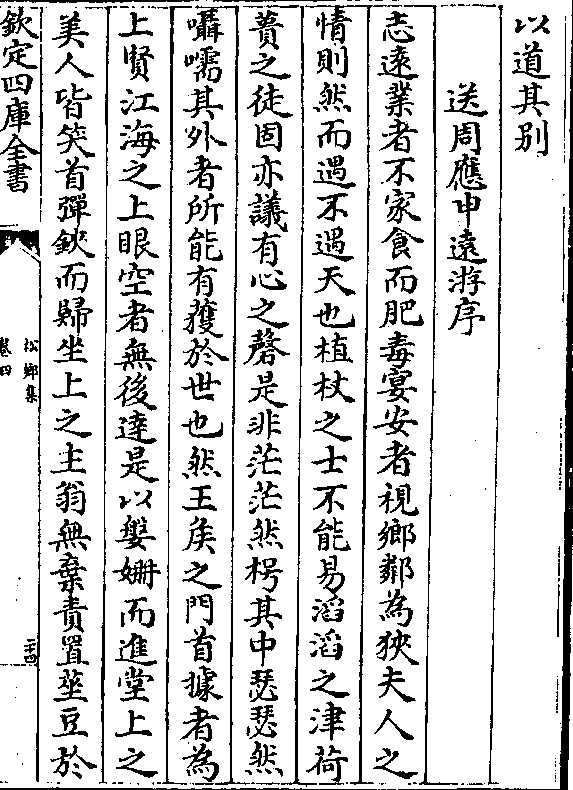 以道其别
送周應中逺游序
志逺業者不家食而肥毒宴安者視鄉鄰為狹夫人之
情則然而遇不遇天也植杖之士不能易滔滔之津荷
蕢之徒固亦議有心之磬是非茫茫然枵其中瑟瑟然
囁嚅其外者所能有獲於世也然王侯之門首據者為
上賢江海之上眼空者無後達是以媻姍而進堂上之
美人皆笑首彈鋏而歸坐上之主翁無棄責置莝豆於
欽定四庫全書
松鄉集
卷四
二十四